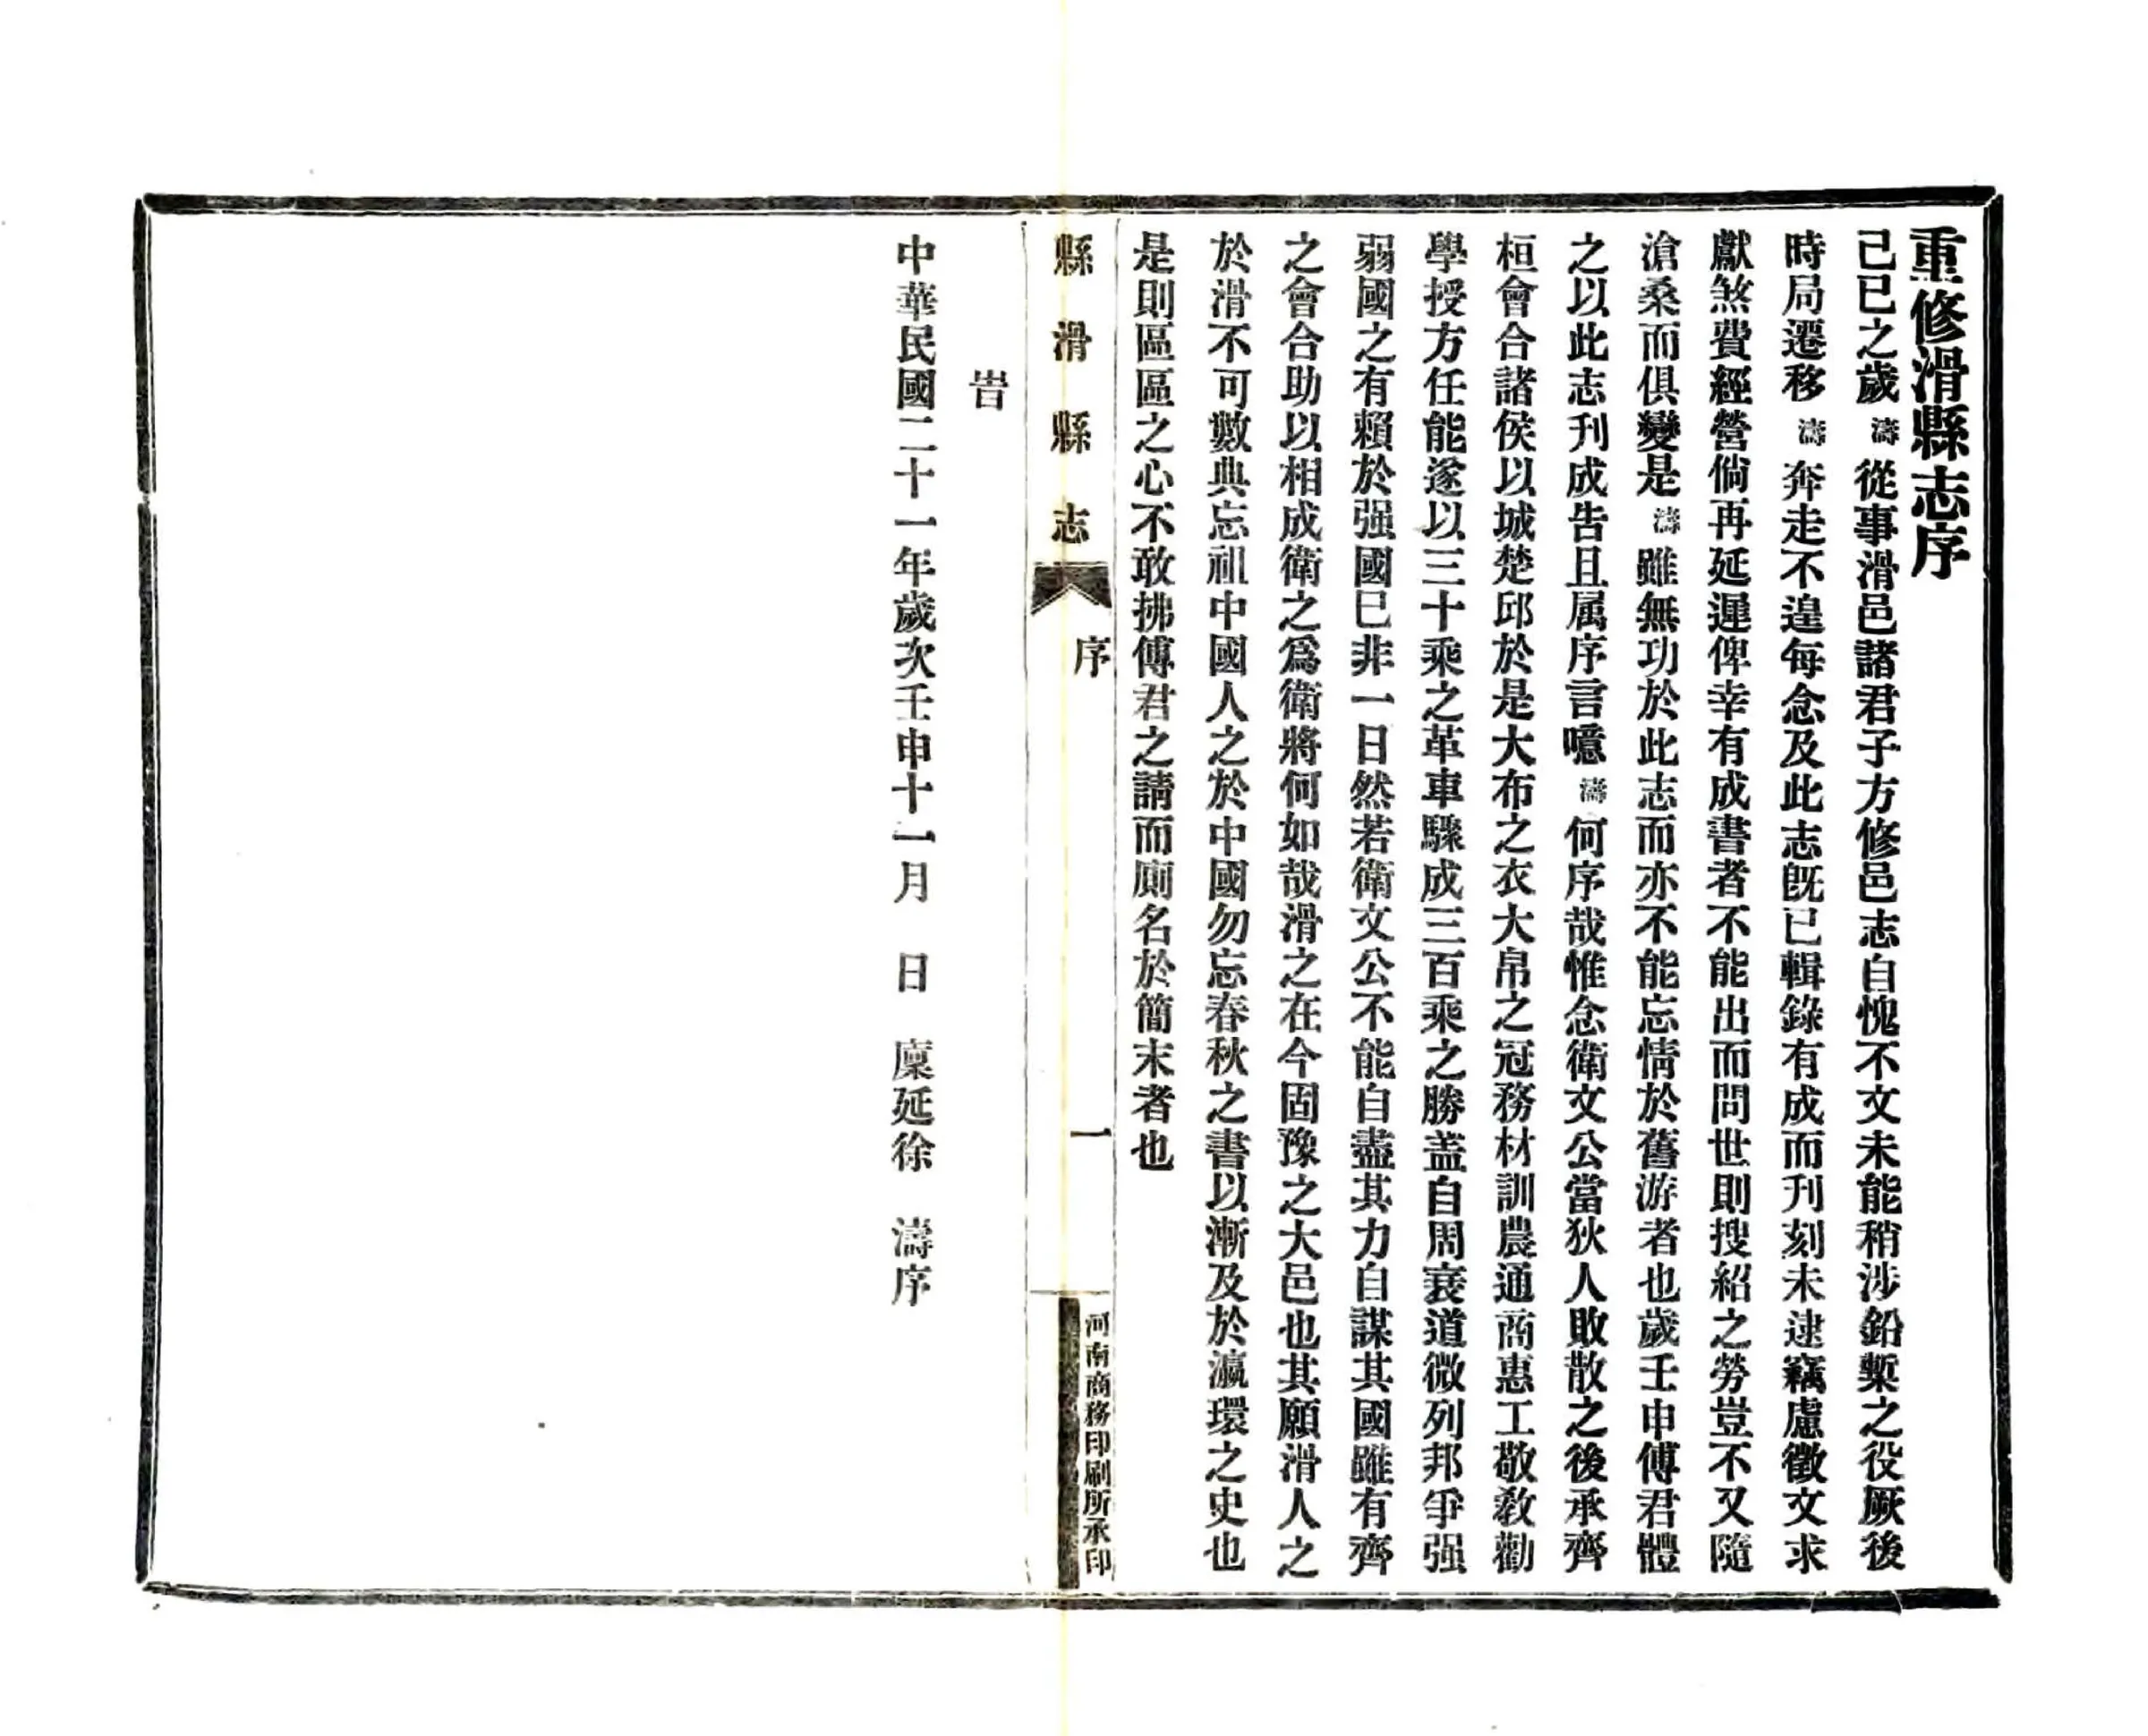 重修滑縣志序
己巳之歲濤從事滑邑諸君子方修邑志自愧不文未能稍涉鉛槧之役厥後
時局遷移濤奔走不遑每念及此志旣已輯錄有成而刊刻未逮竊慮徵文求
獻煞費經營倘再延遲俾幸有成書者不能出而問世則搜紹之勞豈不又隨
滄桑而俱變是濤雖無功於此志而亦不能忘情於舊游者也歲壬申傅君體
之以此志刊成告且属序言噫濤何序哉惟念衛文公當狄人敗散之後承齊
桓會合諸侯以城楚邱於是大布之衣大帛之冠務材訓農通商惠工敬敎勸
學授方任能遂以三十乘之革車驟成三百乘之勝盖自周衰道微列邦爭强
弱國之有賴於强國已非一日然若衛文公不能自盡其力自謀其國雖有齊
之會合助以相成衛之爲衛將何如哉滑之在今固豫之大邑也其願滑人之
於滑不可數典忘祖中國人之於中國勿忘春秋之書以漸及於瀛環之史也
是則區區之心不敢拂傅君之請而廁名於簡末者也
縣滑縣志
序
一
河南商務印刷所承印
旹
中華民國二十一年歲次壬申十一月 日 廩延徐 濤序